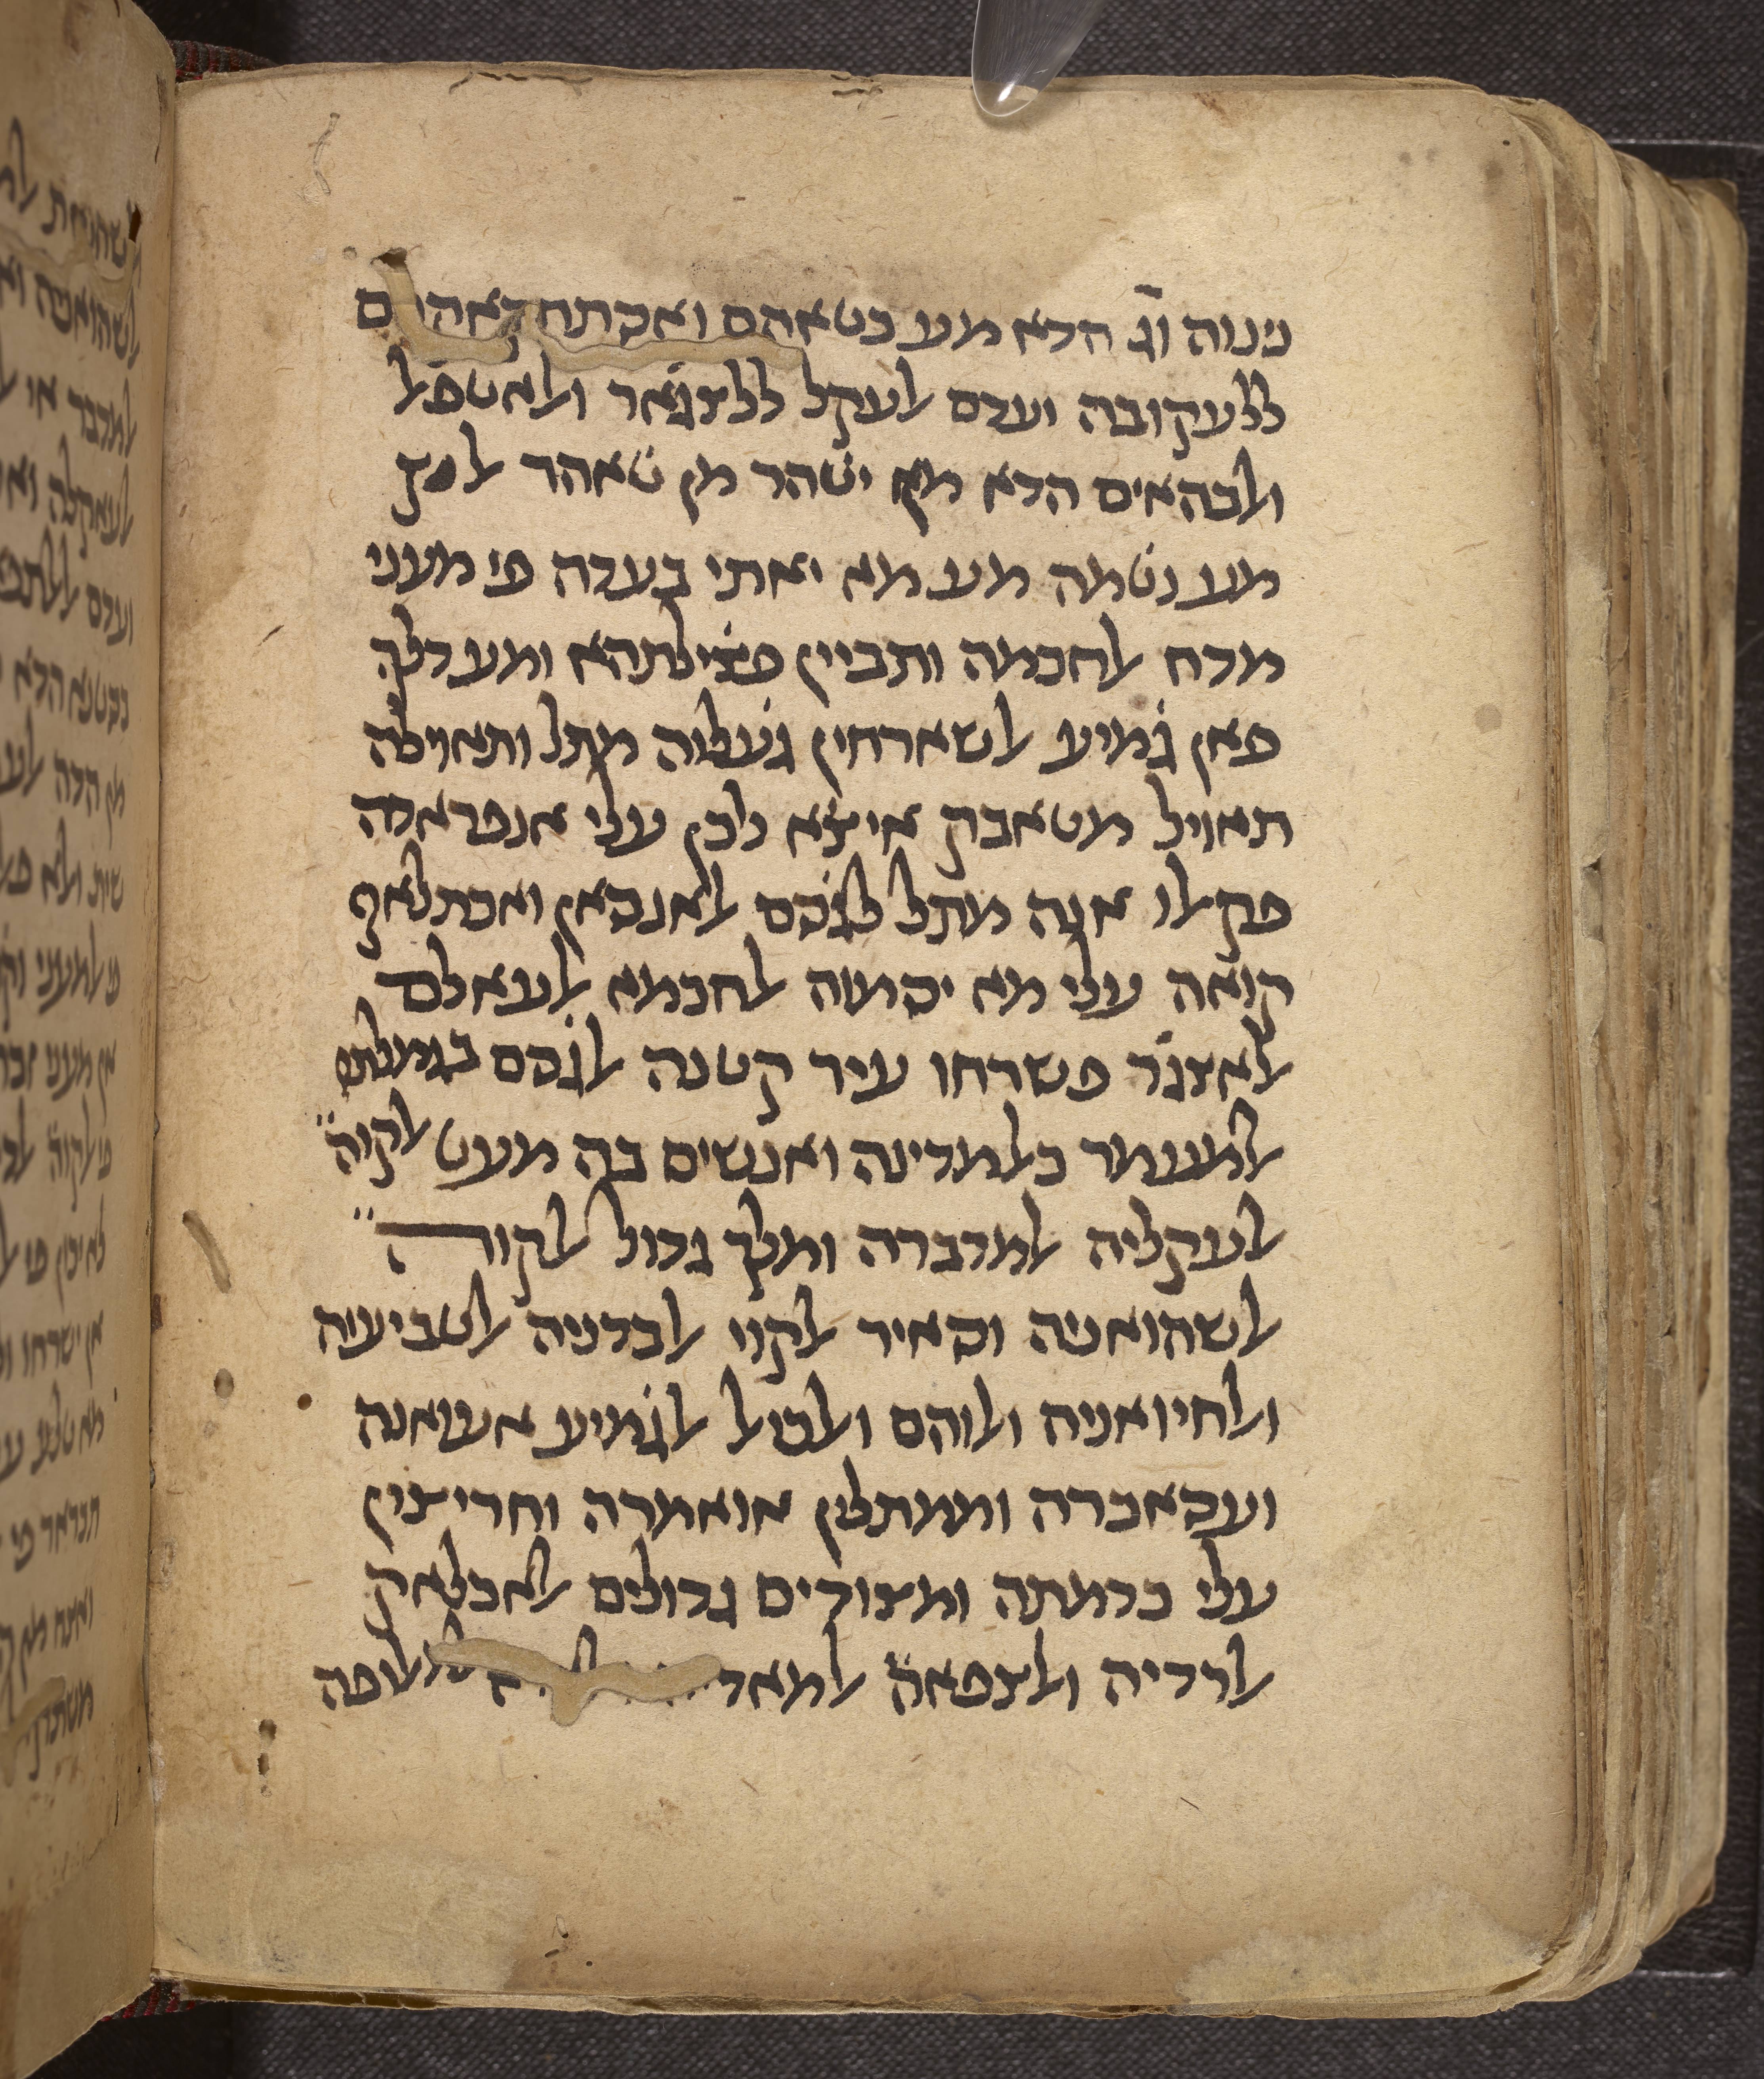 נינוה וג̇ הדא מע כטאהם ואקתח
ללעקובה ועדם אלעקל ללצגאר ואלאטפאל
ואלבהאים הדא מא יט̇הר מן ט̇אהר אלנץ
מע נט̇מה מע מא יאתי בעדה פי מעני
מדח אלחכמה ותביין פצ̇ילתהא ומע דלך
פאן ג̇מיע אלשארחין ג̇עלוה מתל ותאוילה
תאויל מטאבק איצ̇א לכן עלי אנפראדה
פקאלו אנה מתל ללג̇סם אלאנסאן ואכתלאף
קואה עלי מא יסמוה אלחכמא אלעאלם
אלאצג̇ר פשרחו עיר קטנה אלג̇סם בג̇מלתה
אלמעמר כאלמדינה ואנשים בה מעט אלקוה̈
אלעקליה אלמדברה ומלך גדול אלקוה̈
אלשהואניה וסאיר אלקוי אלבדניה אלטביעיה
ואלחיואניה ואלוהם ואלכיאל אלג̇מיע אעואנה
ועסאכרה וממתתלין אואמרה וחריצין
עלי כדמתה ומצודים גדולים אלאכלאק
אלרדיה ואלצפאה̈